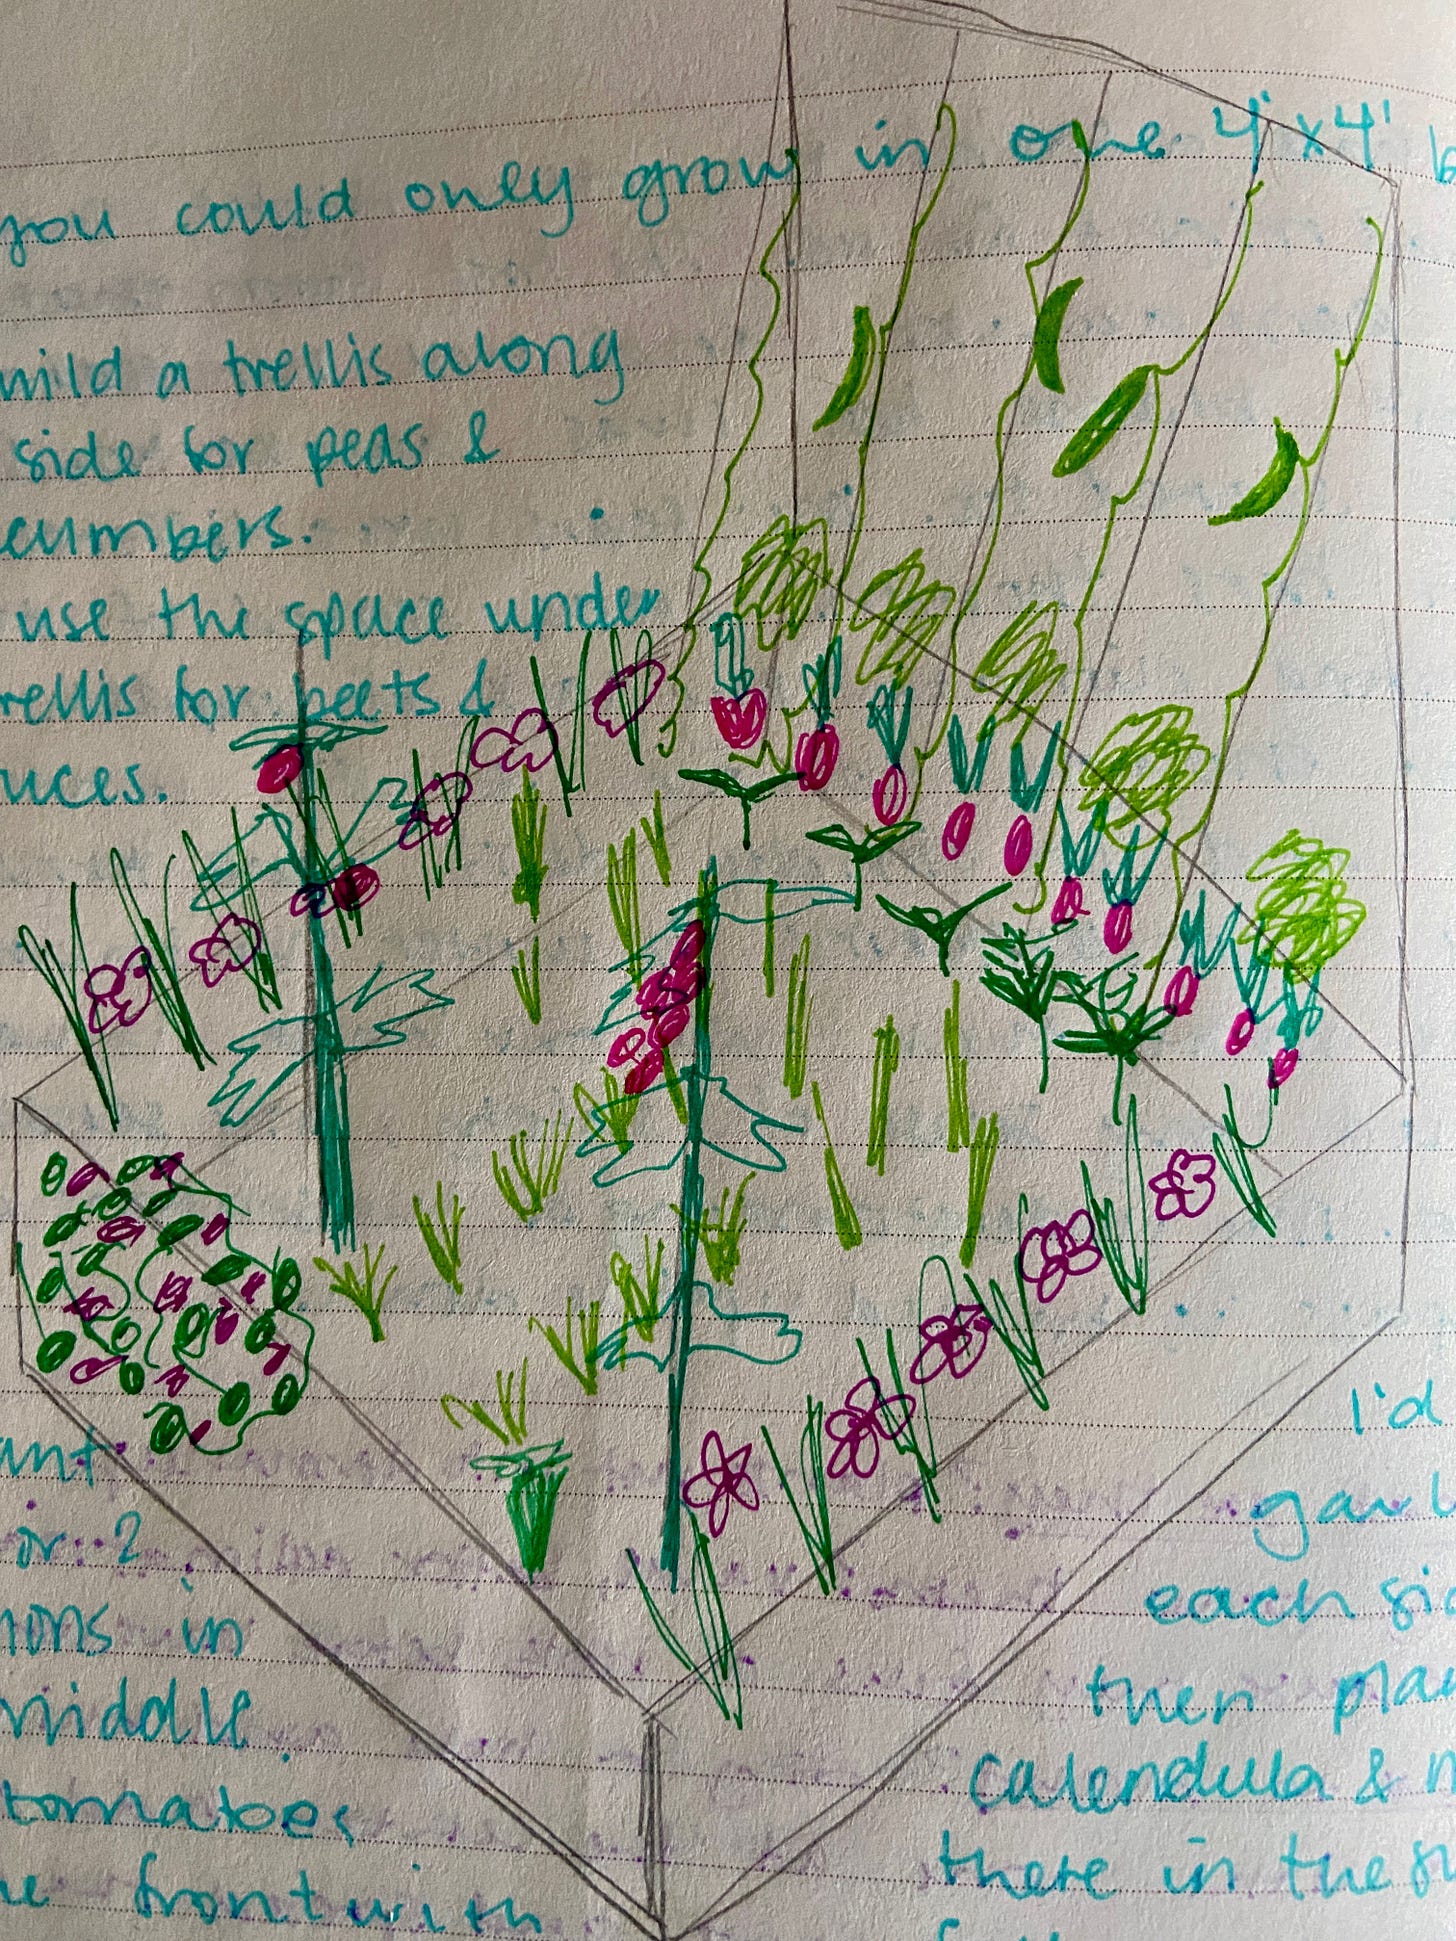 you could only grow in one 4'x4' b
uild a trellis along
side for peas &
cumbers.
use the space under
rellis for beets &
uces.
ant
or 2
ions in
middle.
tomatoes
he front with
I'd
garl
each si
then pla
calendula & n
there in the